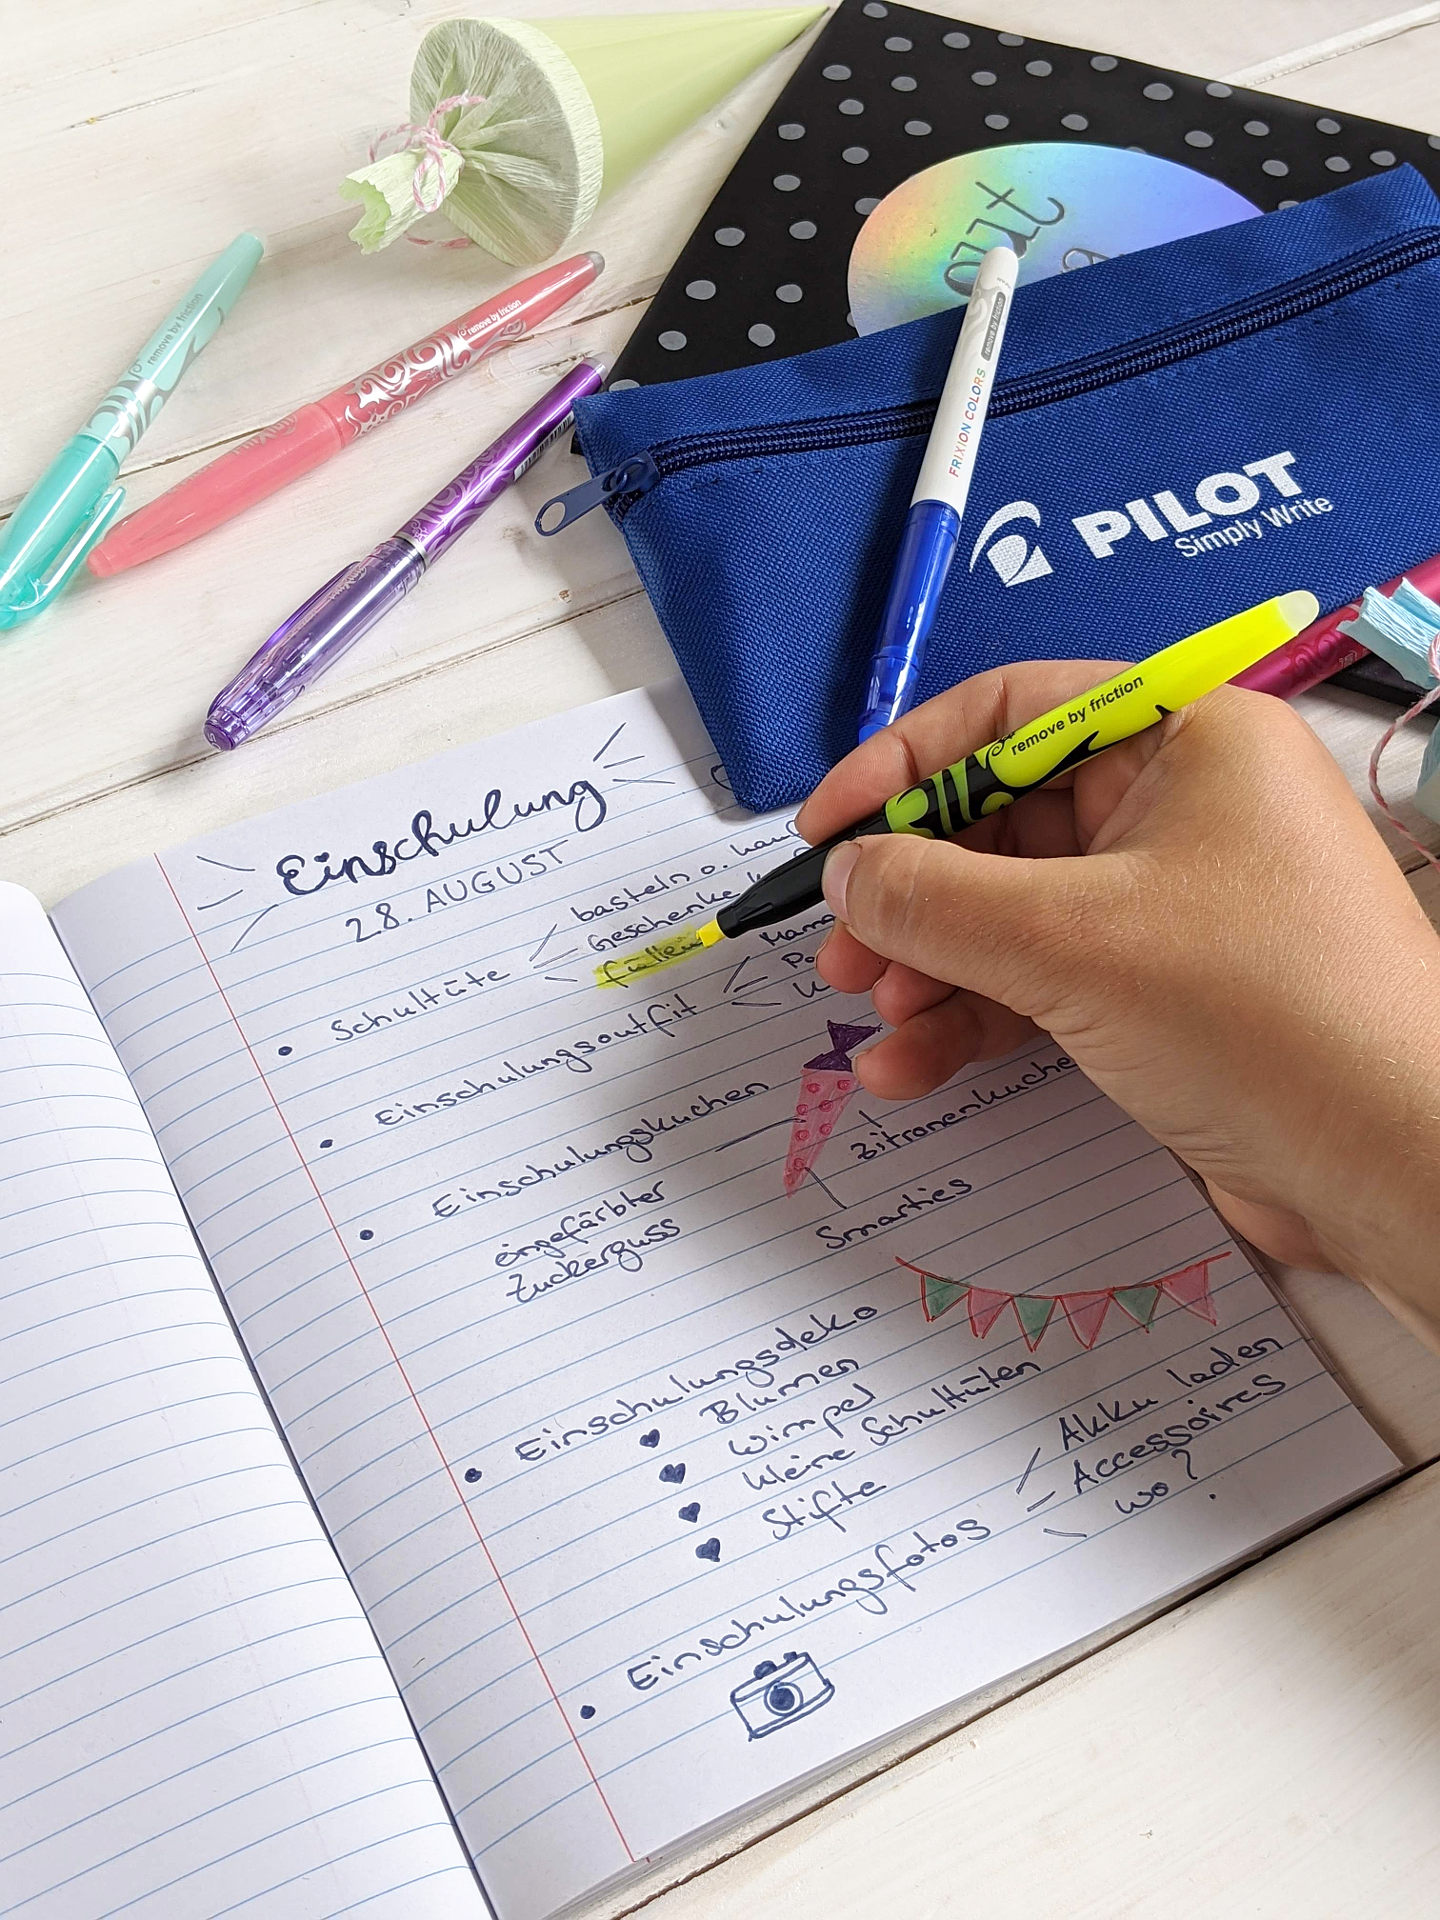 out
remove by friction
remove by friction
remove by friction
FRIXION COLORS
PILOT
Simply Write
remove by friction
Einschulung
28. AUGUST
Schultüte
basteln o.
Geschenke
füllen
Einschulungsoutfit
Mama
Einschulungskuchen
Zitronenkuchen
eingefärbter
Zuckerguss
Smarties
Einschulungsdeko
Blumen
Wimpel
kleine Schultüten
Stifte
Einschulungsfotos
Akku laden
Accessoires
wo?